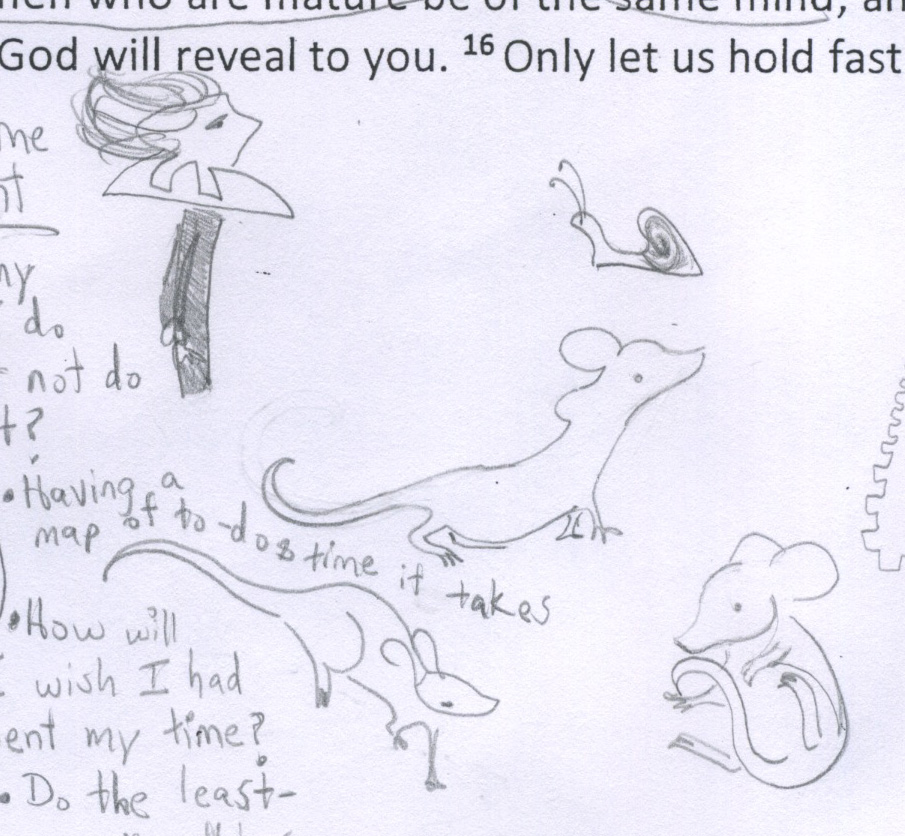 who are mature be of the same mind, an
God will reveal to you. 16 Only let us hold fast
me
nt
ny
do
not do
t?
• Having a
map of to-dos time it takes
• How will
I wish I had
ent my time?
• Do the least-